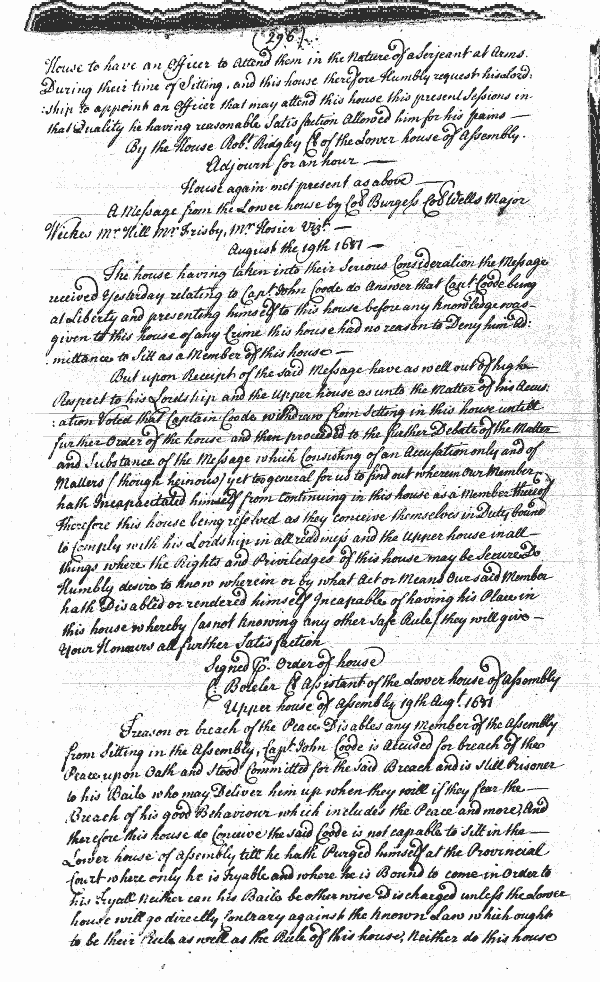 (296)
House to have an Officer to Attend them in the Nature of a Serjeant at Arms.
During their time of Sitting, and this house therefore Humbly request his Lord:
:ship to appoint an Officer that may attend this house this present Sessions in
that Quality he having reasonable Satisfaction Allowed him for his pains —
By the House Robt. Ridgley Cl of the Lower house of Assembly.
Adjourn for an hour —
House again met present as above —
A Message from the Lower house by Col Burgess Col Wells Major
Wickes Mr Hill Mr Frisby, Mr Hosier Vizt. —
August the 19th 1681 —
The house having taken into their Serious Consideration the Message
received Yesterday relating to Capt. John Coode do Answer that Capt Coode being
at Liberty and presenting himself to this house before any knowledge was —
given to this house of any Crime this house had no reason to Deny him Ad:
:mittance to Sitt as a Member of this house —
But upon Receipt of the said Message have as well out of high
Respect to his Lordship and the Upper house as unto the Matter of his Accus:
:ation Voted that Captain Coode withdraw from Sitting in this house untill
further Order of the house and then proceeded to the further Debate of the Matter
and Substance of the Message which Consisting of an Accusation only and of
Matters (though heinous) yet to general for us to find out wherein Our Member
hath Incapacitated himself from continuing in this house as a Member thereof
Therefore this house being resolved as they conceive themselves in Duty bound
to Comply with his Lordship in all readiness and the Upper house in all —
things where the Rights and Priviledges of this house may be Secure Do
Humbly desire to know wherein or by what Act or Means Our said Member
hath Disabled or rendered himself Incapable of having his Place in
this house whereby (as not knowing any other Safe Rule) they will give —
Your Honours all further Satisfaction
Signed P. Order of house
C: Boteler Cl Assistant of the Lower house of Assembly
Upper house of Assembly 19th Augt. 1681
Treason or breach of the Peace Disables any Member of the Assembly
from Sitting in the Assembly, Capt. John Coode is Accused for breach of the
Peace upon Oath and Stood Committed for the said Breach and is still Prisoner
to his Baile who may Deliver him up when they will if they fear the —
Breach of his good Behaviour which includes the Peace and more, And
therefore this house do Conceive the said Coode is not capable to Sitt in the —
Lower house of Assembly till he hath Purged himself at the Provincial
Court where only he is tryable and where he is Bound to come in Order to
his Tryall Neither can his Baile be otherwise Discharged unless the Lower
house will go directly Contrary against the known Law which ought
to be their Rule as well as the Rule of this house, Neither do this house